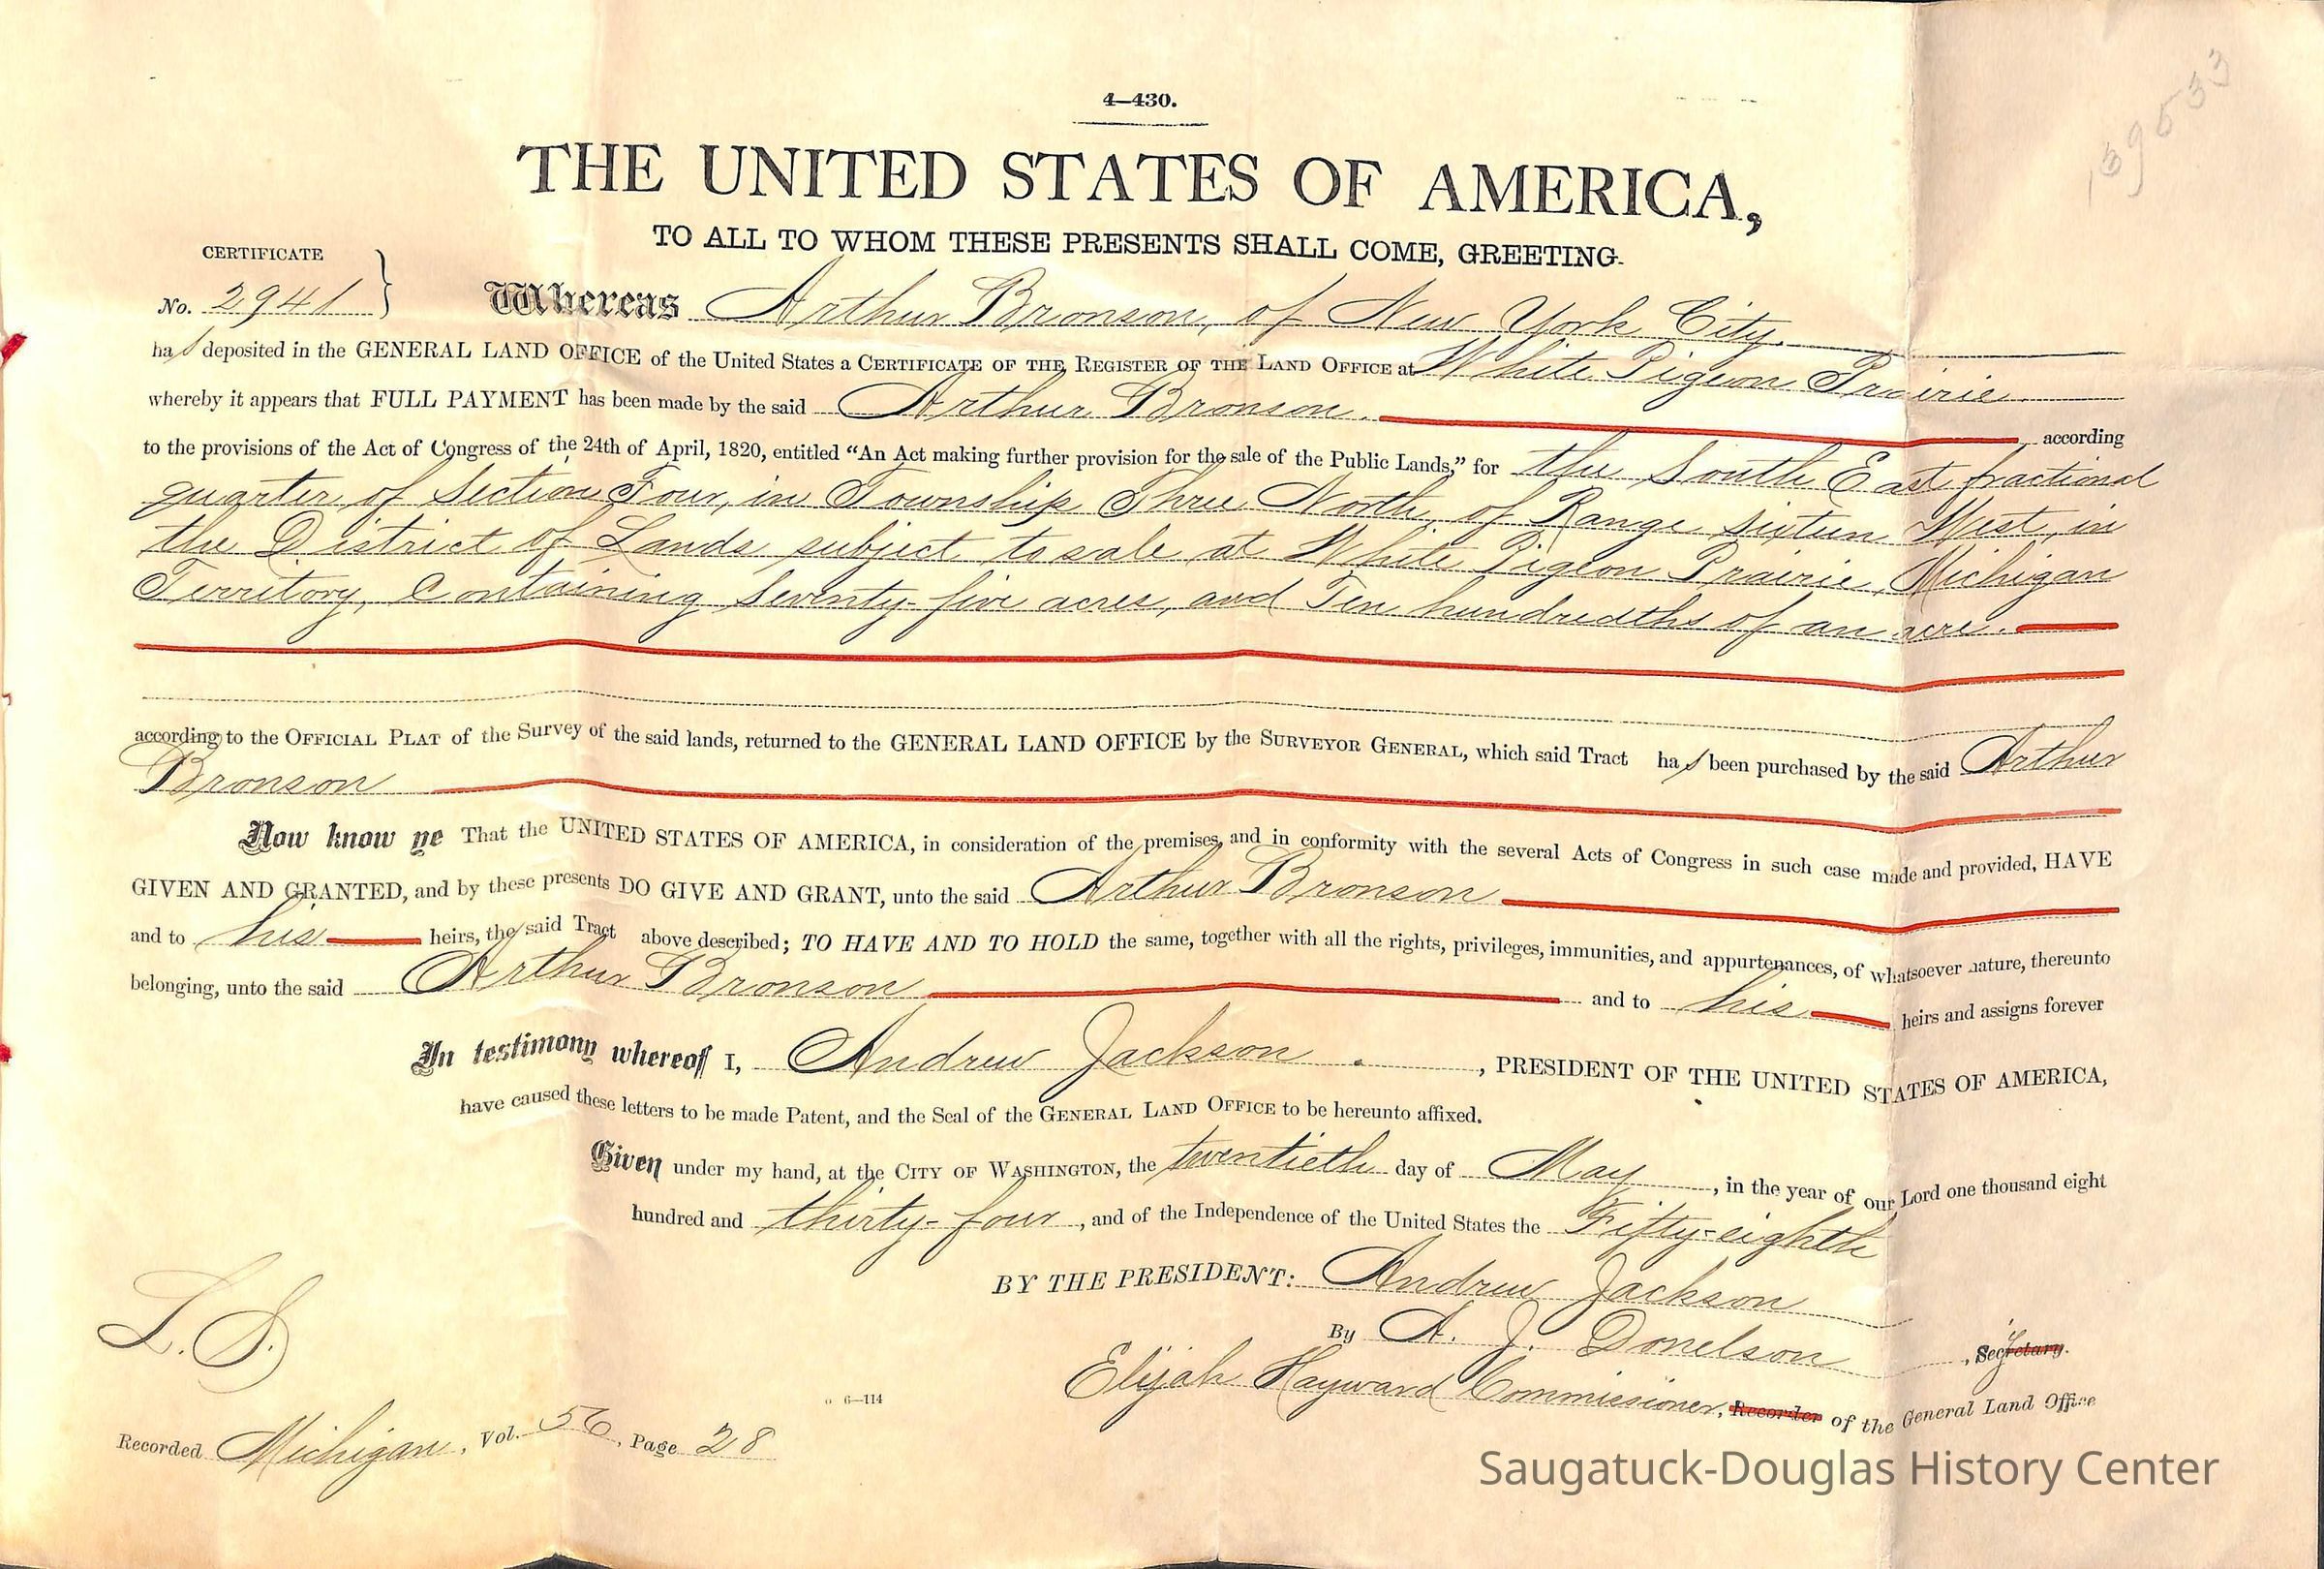 139533
4—430.
THE UNITED STATES OF AMERICA,
TO ALL TO WHOM THESE PRESENTS SHALL COME, GREETING.
CERTIFICATE
No. 2941
Whereas Arthur Bronson, of New York City.
has deposited in the GENERAL LAND OFFICE of the United States a CERTIFICATE OF THE REGISTER OF THE LAND OFFICE at White Pigeon Prairie
whereby it appears that FULL PAYMENT has been made by the said Arthur Bronson. according
to the provisions of the Act of Congress of the 24th of April, 1820, entitled “An Act making further provision for the sale of the Public Lands,” for the South East fractional
quarter of Section Four, in Township Three North, of Range sixteen West, in
the District of Lands subject to sale at White Pigeon Prairie, Michigan
Territory, Containing Seventy-five acres, and Ten hundredths of an acre.
according to the OFFICIAL PLAT of the Survey of the said lands, returned to the GENERAL LAND OFFICE by the SURVEYOR GENERAL, which said Tract has been purchased by the said Arthur
Bronson
Now know ye That the UNITED STATES OF AMERICA, in consideration of the premises, and in conformity with the several Acts of Congress in such case made and provided, HAVE
GIVEN AND GRANTED, and by these presents DO GIVE AND GRANT, unto the said Arthur Bronson
and to his heirs, the said Tract above described; TO HAVE AND TO HOLD the same, together with all the rights, privileges, immunities, and appurtenances, of whatsoever nature, thereunto
belonging, unto the said Arthur Bronson and to his heirs and assigns forever
In testimony whereof I, Andrew Jackson . , PRESIDENT OF THE UNITED STATES OF AMERICA,
have caused these letters to be made Patent, and the Seal of the GENERAL LAND OFFICE to be hereunto affixed.
Given under my hand, at the CITY OF WASHINGTON, the twentieth day of May , in the year of our Lord one thousand eight
hundred and thirty-four , and of the Independence of the United States the Fifty-eighth
BY THE PRESIDENT: Andrew Jackson
By A. J. Donelson , Secretary.
L.S.
Elijah Hayward Commissioner, Recorder of the General Land Office
6—114
Recorded Michigan, Vol. 56, Page 28
Saugatuck-Douglas History Center